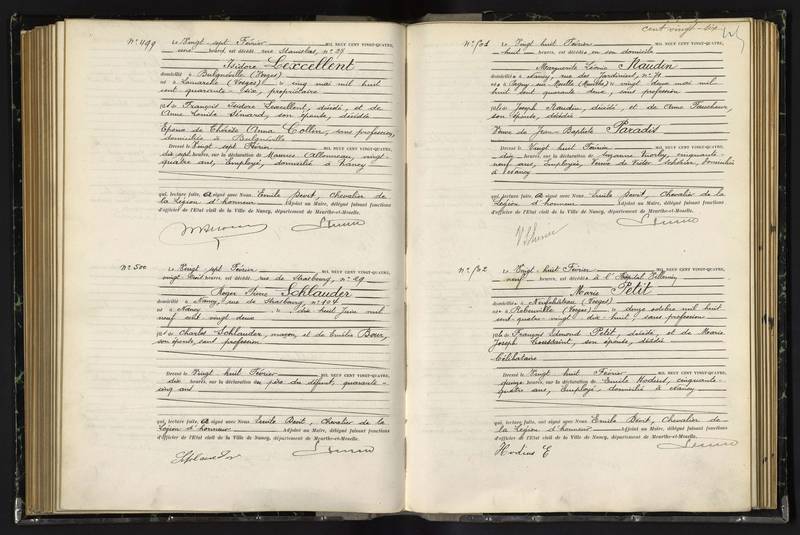 N° 499
Le Vingt-sept Février MIL NEUF CENT VINGT-QUATRE,
une heure, est décédé rue Stanislas, n° 27
Isidore Lexcellent
domicilié à Bulgnéville (Vosges)
né à Lamarche (Vosges) le cinq mai mil huit
cent quarante-six, propriétaire
fils de François Isidore Lexcellent, décédé, et de
Anne Lucile Renard, son épouse, décédée
Epoux de Thérèse Anna Collin, sans profession,
domiciliée à Bulgnéville
Dressé le Vingt-sept Février MIL NEUF CENT VINGT-QUATRE,
dix-sept heures, sur la déclaration de Maurice vingt-
quatre ans, Employé, domicilié à Nancy
qui, lecture faite, a signé avec Nous Emile Bevit, Chevalier de
la Légion d'honneur Adjoint au Maire, délégué faisant fonctions
d'officier de l'État civil de la Ville de Nancy, département de Meurthe-et-Moselle.
N° 500
Le Vingt-sept Février MIL NEUF CENT VINGT-QUATRE,
vingt-trois heures, est décédé rue de Strasbourg, n° 29
Roger Irené Schlauder
domicilié à Nancy, rue de Strasbourg, n° 104
né à Nancy le dix-huit Juin mil
neuf cent vingt-deux
fils de Charles Schlauder, maçon, et de Emilie Bour,
son épouse, sans profession
Dressé le Vingt-huit Février MIL NEUF CENT VINGT-QUATRE,
dix heures, sur la déclaration du père du défunt, quarante-
cinq ans
qui, lecture faite, a signé avec Nous Emile Bevit, Chevalier de la
Légion d'honneur Adjoint au Maire, délégué faisant fonctions
d'officier de l'État civil de la Ville de Nancy, département de Meurthe-et-Moselle.
Schlauder
cent vingt-six
N° 501
Le Vingt-huit Février MIL NEUF CENT VINGT-QUATRE,
huit heures, est décédée en son domicile
Marguerite Léonie Naudin
domiciliée à Nancy, rue des Jardiniers, n° 70
née à Pagny-sur-Moselle (Meurthe) le deux mai mil
huit cent quarante-deux, sans profession
fille de Joseph Naudin, décédé, et de Anne Faucheur,
son épouse, décédée
Veuve de Jean-Baptiste Paradis
Dressé le Vingt-huit Février MIL NEUF CENT VINGT-QUATRE,
dix heures, sur la déclaration de Suzanne cinquante-
neuf ans, Employée, Veuve de Victor domiciliée
à Nancy
qui, lecture faite, a signé avec Nous Emile Bevit, Chevalier de la
Légion d'honneur Adjoint au Maire, délégué faisant fonctions
d'officier de l'État civil de la Ville de Nancy, département de Meurthe-et-Moselle.
N° 502
Le Vingt-huit Février MIL NEUF CENT VINGT-QUATRE,
neuf heures, est décédée à l'Hôpital Villemin
Marie Petit
domiciliée à Neufchâteau (Vosges)
née à Rebeuville (Vosges) le douze octobre mil huit
cent quatre-vingt-dix-huit, sans profession
fille de François Edmond Petit, décédé, et de Marie
Joseph Toussaint, son épouse, décédée
Célibataire
Dressé le Vingt-huit Février MIL NEUF CENT VINGT-QUATRE,
quinze heures, sur la déclaration de Emile Hodius, cinquante-
quatre ans, Employé, domicilié à Nancy
qui, lecture faite, a signé avec Nous Emile Bevit, Chevalier de
la Légion d'honneur Adjoint au Maire, délégué faisant fonctions
d'officier de l'État civil de la Ville de Nancy, département de Meurthe-et-Moselle.
Hodius E